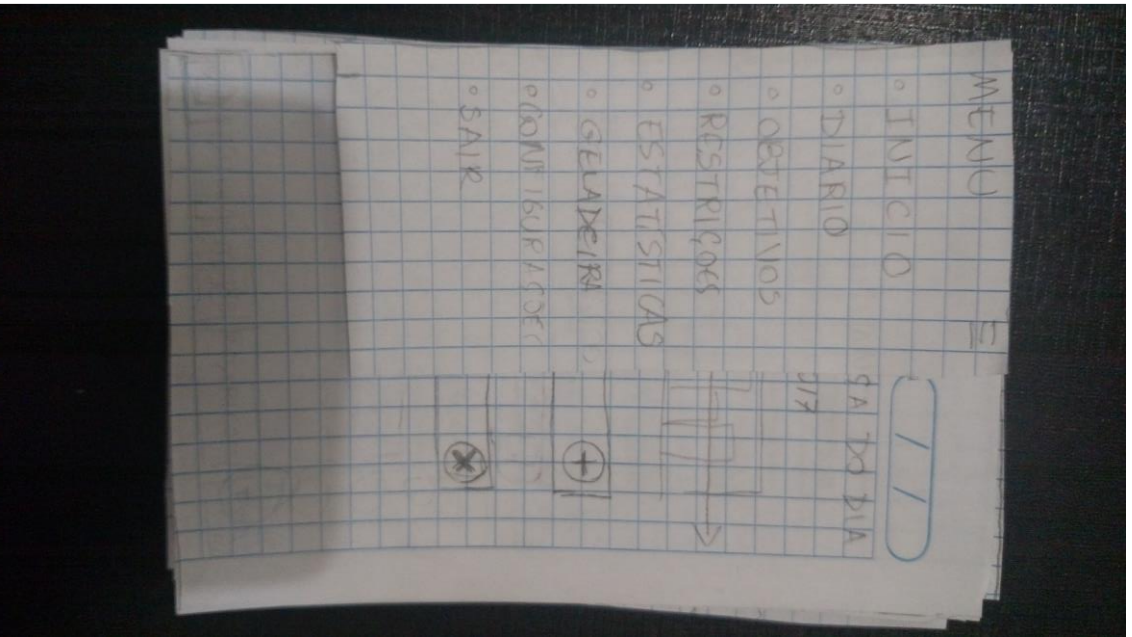 MENU
• INICIO
• DIARIO
• OBJETIVOS
• RESTRIÇOES
• ESTATISTICAS
• GELADEIRA
• CONFIGURAÇOES
• SAIR
/ /
ÇA DO DIA
017